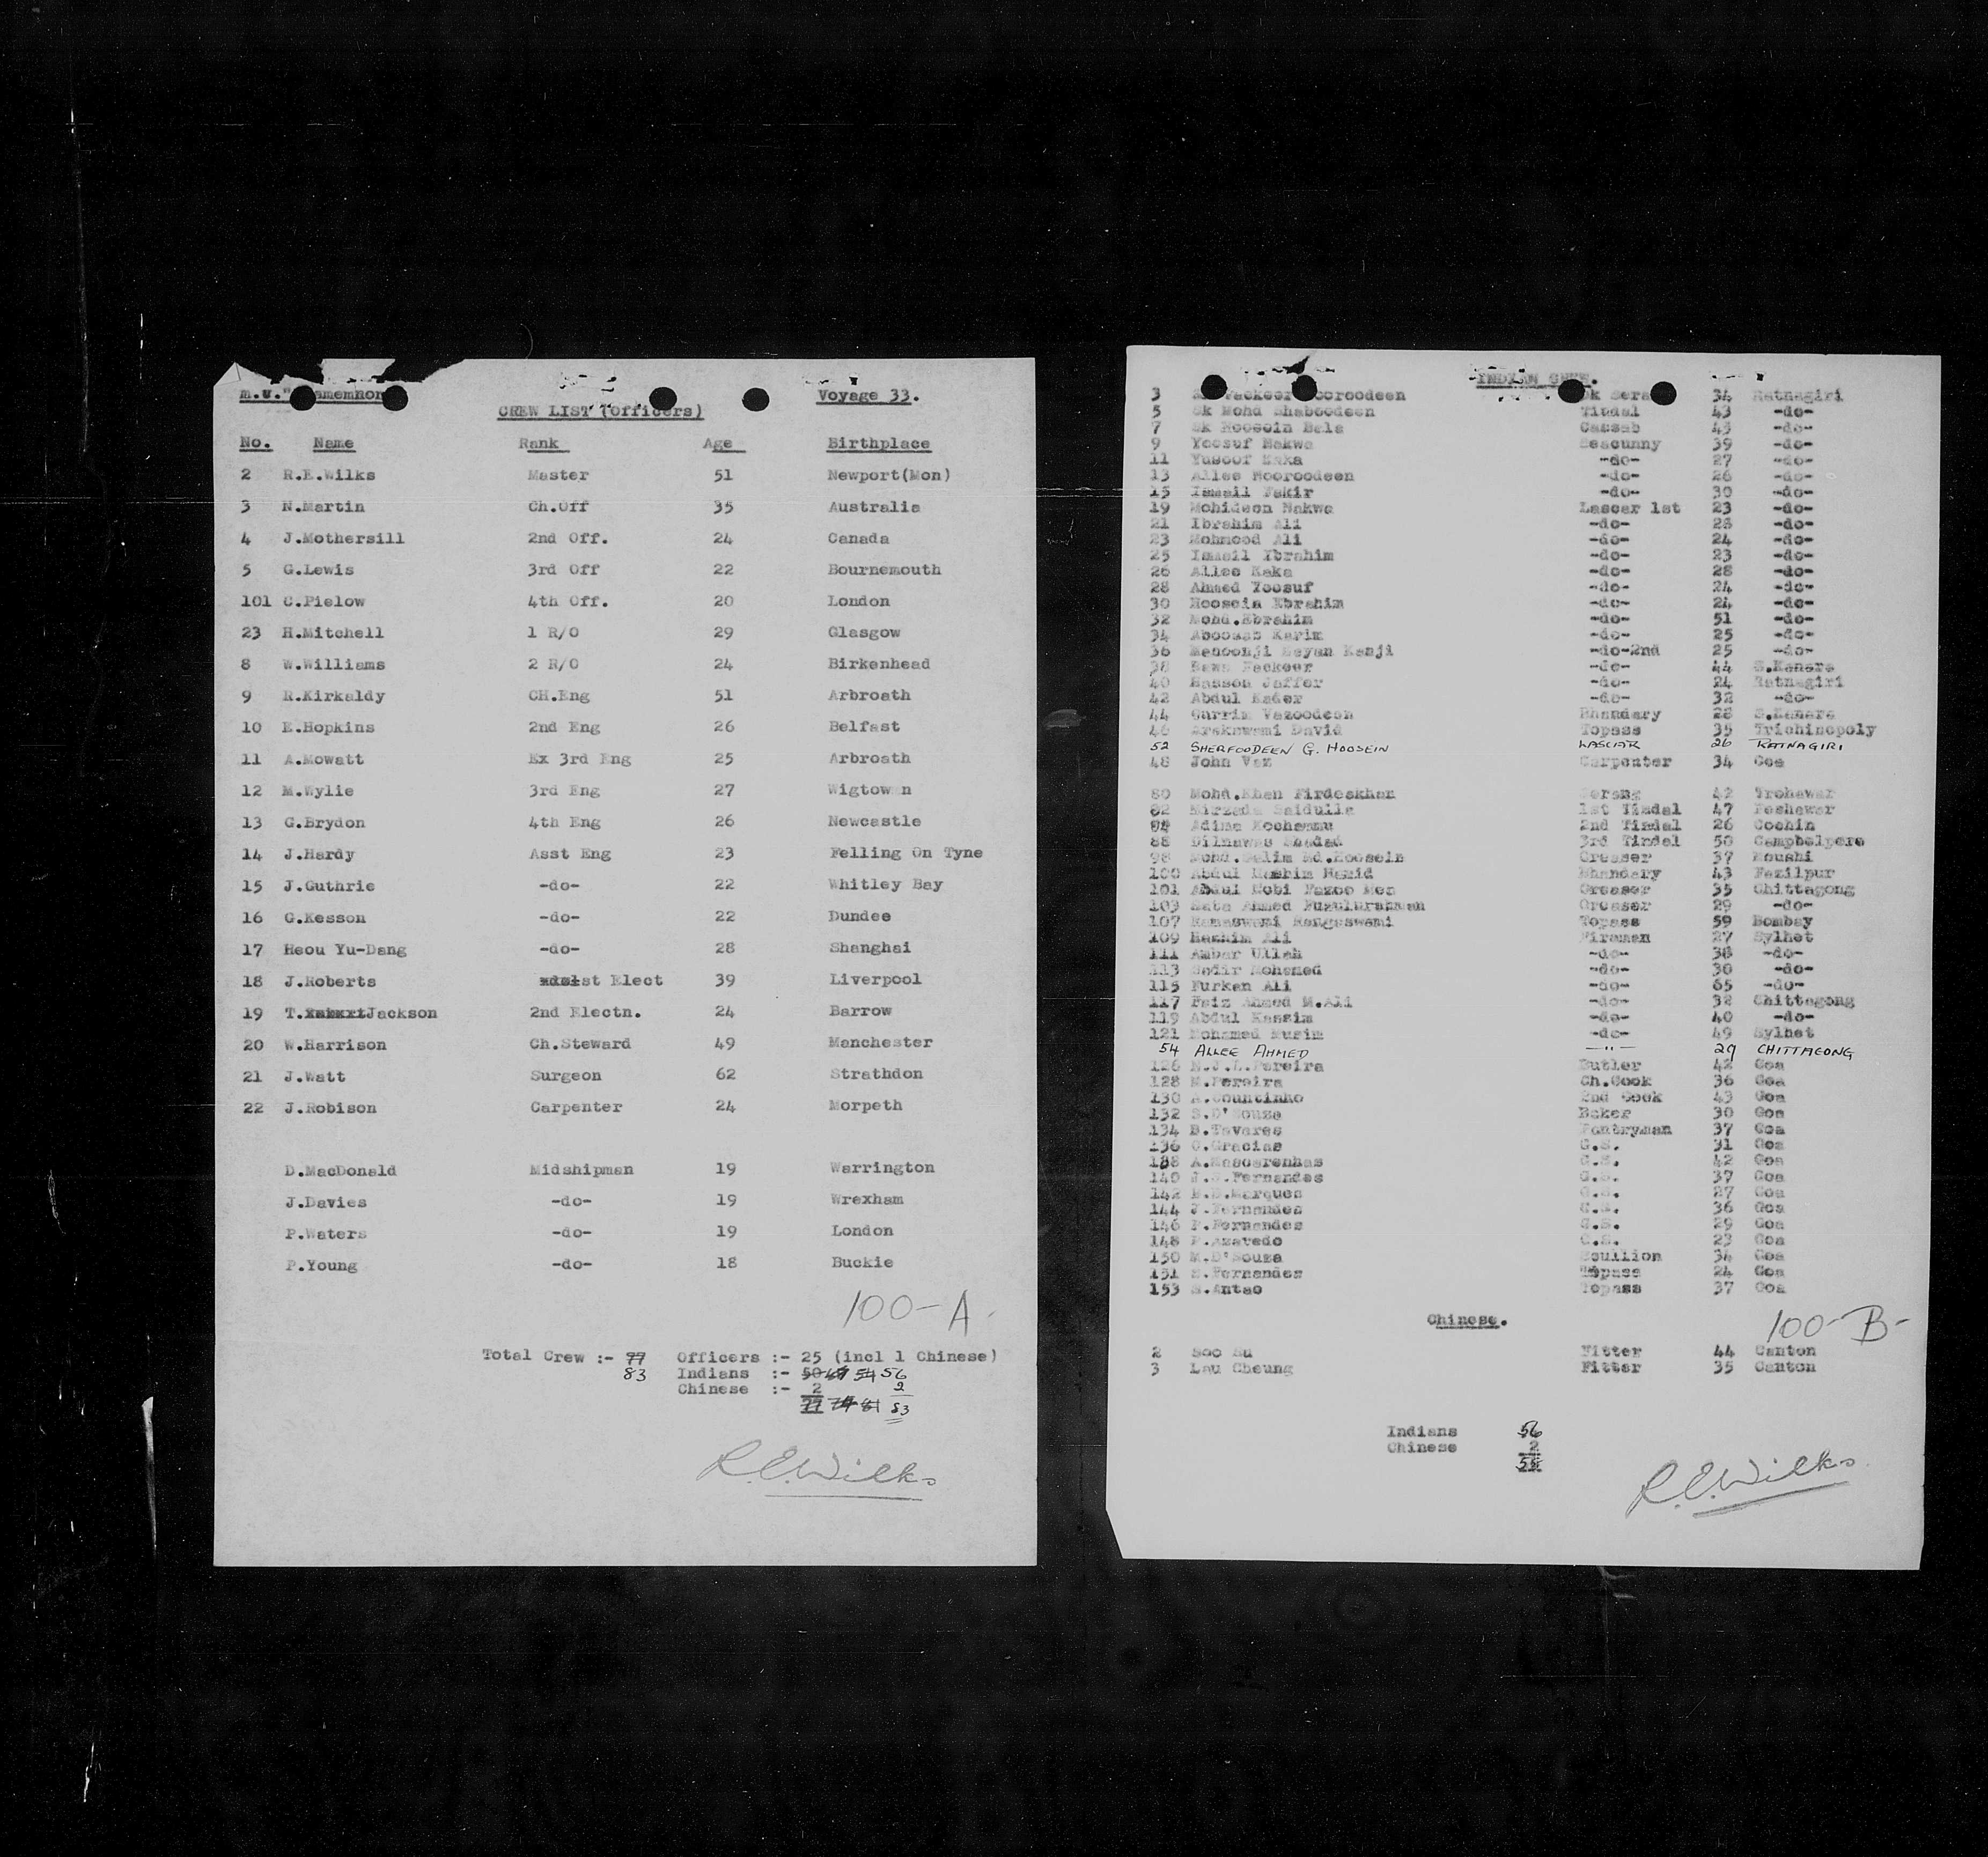 Voyage 33.
CREW LIST (Officers)
No. Name Rank Age Birthplace
2 R.E.Wilks Master 51 Newport(Mon)
3 N.Martin Ch.Off 35 Australia
4 J.Mothersill 2nd Off. 24 Canada
5 G.Lewis 3rd Off 22 Bournemouth
101 C.Pielow 4th Off. 20 London
23 H.Mitchell 1 R/O 29 Glasgow
8 W.Williams 2 R/O 24 Birkenhead
9 R.Kirkaldy CH.Eng 51 Arbroath
10 E.Hopkins 2nd Eng 26 Belfast
11 A.Mowatt Ex 3rd Eng 25 Arbroath
12 M.Wylie 3rd Eng 27 Wigtown
13 G.Brydon 4th Eng 26 Newcastle
14 J.Hardy Asst Eng 23 Felling On Tyne
15 J.Guthrie -do- 22 Whitley Bay
16 G.Kesson -do- 22 Dundee
17 Heou Yu-Dang -do- 28 Shanghai
18 J.Roberts 1st Elect 39 Liverpool
19 T.Jackson 2nd Electn. 24 Barrow
20 W.Harrison Ch.Steward 49 Manchester
21 J.Watt Surgeon 62 Strathdon
22 J.Robison Carpenter 24 Morpeth
D.MacDonald Midshipman 19 Warrington
J.Davies -do- 19 Wrexham
P.Waters -do- 19 London
P.Young -do- 18 Buckie
100-A-
Total Crew :- 77 Officers :- 25 (incl 1 Chinese)
83 Indians :- 50 54 56
Chinese :- 2 2
77 81 83
R.E.Wilks
INDIAN CREW.
3 34 Ratnagiri
5 Sk Mohd Shaboodeen Tindal 43 -do-
7 Sk Hoosein Bala Cassab 45 -do-
9 Yoosuf Nakwa Seacunny 39 -do-
11 Yusoof Kaka -do- 27 -do-
13 Allee Nooroodeen -do- 26 -do-
15 Ismail Fakir -do- 30 -do-
19 Mohideen Nakwa Lascar 1st 23 -do-
21 Ibrahim Ali -do- 23 -do-
23 Mohmood Ali -do- 24 -do-
25 Ismail Ibrahim -do- 23 -do-
26 Allee Kaka -do- 28 -do-
28 Ahmed Yoosuf -do- 24 -do-
30 Hoosein Ebrahim -do- 24 -do-
32 Mohd.Ebrahim -do- 51 -do-
34 Karim -do- 25 -do-
36 Kanji -do-2nd 25 -do-
38 Bawa Fackeer -do- 44 S.Kanara
40 Hassen Jaffer -do- 24 Ratnagiri
42 Abdul Kader -do- 32 -do-
44 Bhandary 28 S.Kanara
46 David Topass 35 Trichinopoly
52 SHERFOODEEN G. HOOSEIN LASCAR 26 RATNAGIRI
48 John Vaz Carpenter 34 Goa
80 Mohd.Khan Firdoskhan Serang 42
82 Mirzada Saidulla 1st Tindal 47 Peshawar
84 2nd Tindal 26 Cochin
88 Dilnawas 3rd Tindal 50 Campbelpore
98 Mohd.Selim Md.Hoosein Greaser 37
100 Abdul Hamid Bhandary 43 Fazilpur
101 Abdul Greaser 35 Chittagong
103 Ahmed Greaser 29 -do-
107 Ramaswami Rangaswami Topass 59 Bombay
109 Hashim Ali Fireman 27 Sylhet
111 Ambar Ullah -do- 38 -do-
113 Mohamed -do- 30 -do-
115 Furkan Ali -do- 65 -do-
117 Faiz Ahmed M.Ali -do- 32 Chittagong
119 Abdul Kassim -do- 40 -do-
121 Mohamed -do- 49 Sylhet
54 ALLEE AHMED -"- 29 CHITTAGONG
126 Pereira Butler 42 Goa
128 Pereira Ch.Cook 36 Goa
130 A.Countinho 2nd Cook 43 Goa
132 S.D'Souza Baker 30 Goa
134 B.Tavares Pantryman 37 Goa
136 C.Gracias G.S. 31 Goa
138 A.Mascarenhas G.S. 42 Goa
140 Fernandes G.S. 37 Goa
142 Marques G.S. 27 Goa
144 J.Fernandes G.S. 36 Goa
146 P.Fernandes G.S. 29 Goa
148 P.Azavedo G.S. 23 Goa
150 M.D'Souza Scullion 34 Goa
151 S.Fernandes Topass 24 Goa
153 S.Antao Topass 37 Goa
Chinese.
100-B-
2 Soo Su Fitter 44 Canton
3 Lau Cheung Fitter 35 Canton
Indians 56
Chinese 2
58
R.E.Wilks